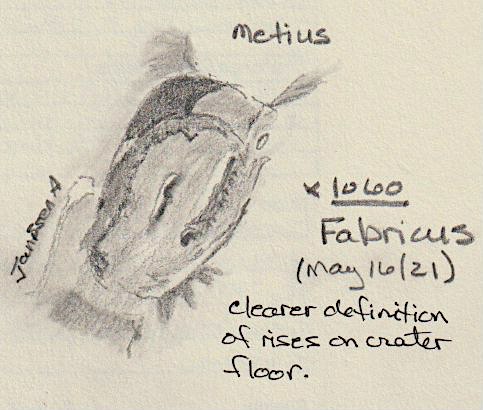 Metius
Janssen A
x 1060
Fabricus
(May 16/21)
clearer definition
of rises on crater
floor.